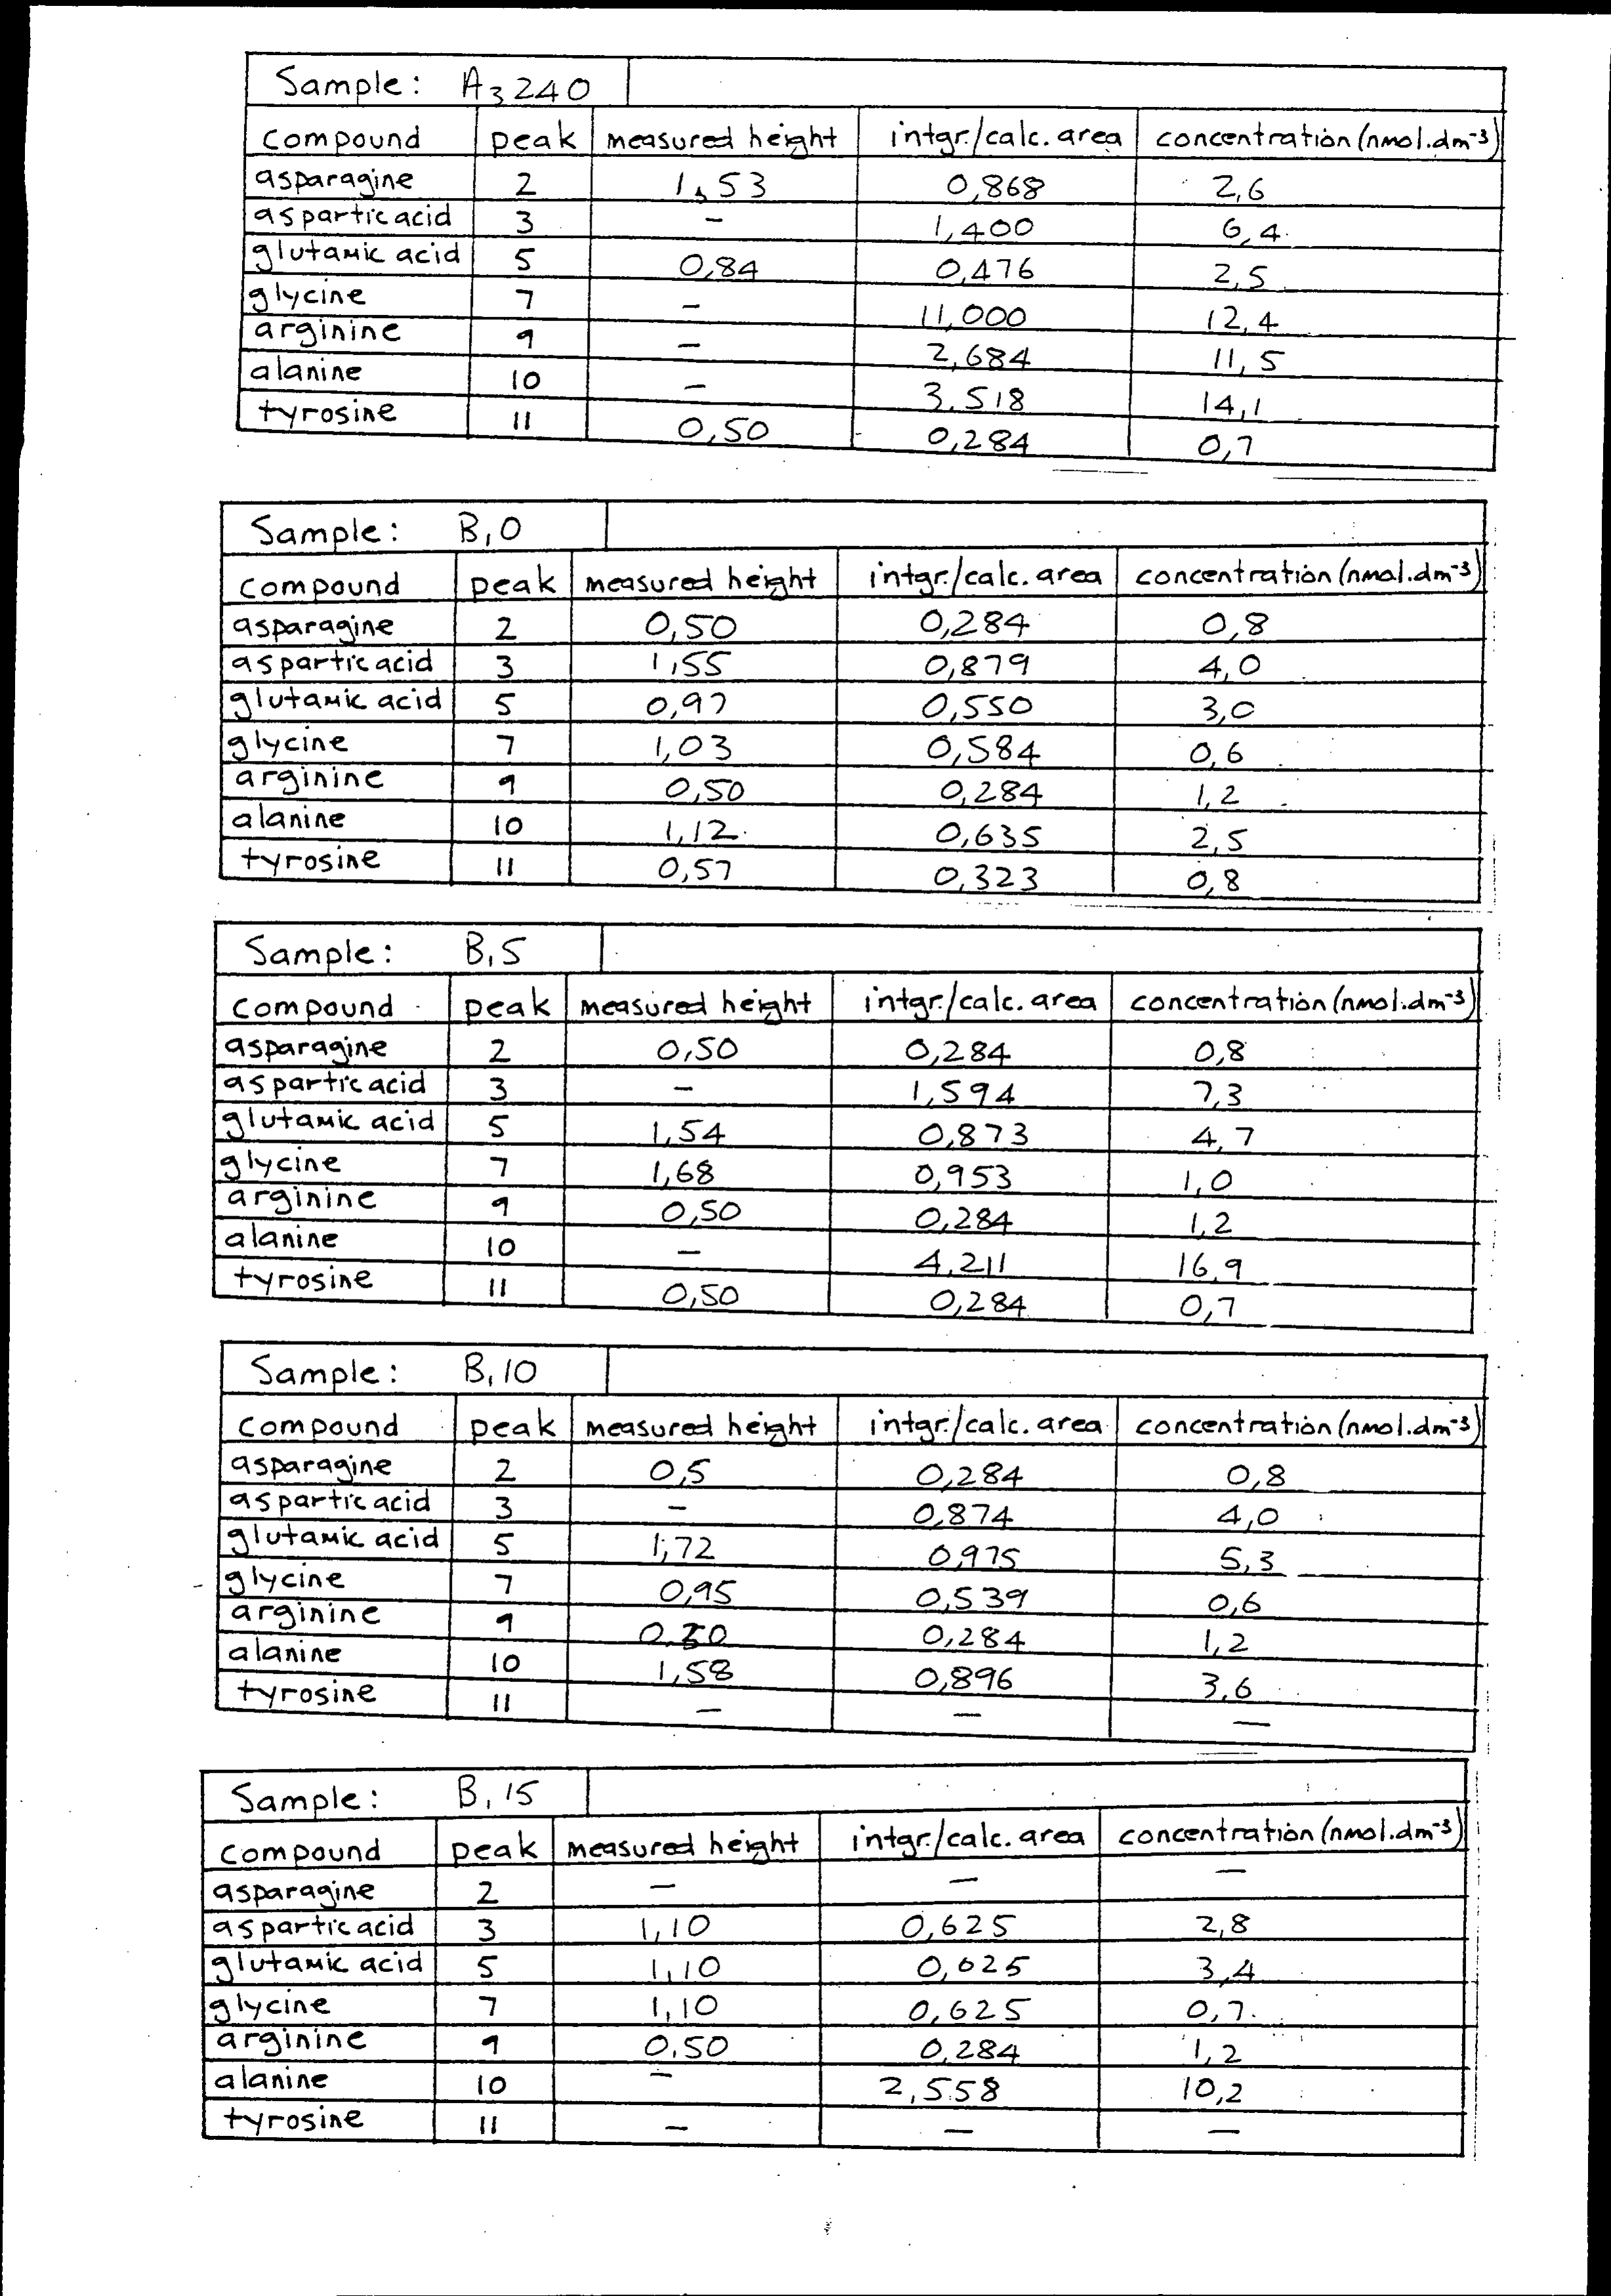 Sample: A₃240
compound peak measured height intgr./calc. area concentration (nmol.dm⁻³)
asparagine 2 1,53 0,868 2,6
aspartic acid 3 – 1,400 6,4
glutamic acid 5 0,84 0,476 2,5
glycine 7 – 11,000 12,4
arginine 9 – 2,684 11,5
alanine 10 – 3.518 14,1
tyrosine 11 0,50 0,284 0,7
Sample: B,0
compound peak measured height intgr./calc. area concentration (nmol.dm⁻³)
asparagine 2 0,50 0,284 0,8
aspartic acid 3 1,55 0,879 4,0
glutamic acid 5 0,97 0,550 3,0
glycine 7 1,03 0,584 0,6
arginine 9 0,50 0,284 1,2
alanine 10 1,12 0,635 2,5
tyrosine 11 0,57 0,323 0,8
Sample: B,5
compound peak measured height intgr./calc. area concentration (nmol.dm⁻³)
asparagine 2 0,50 0,284 0,8
aspartic acid 3 – 1,594 7,3
glutamic acid 5 1,54 0,873 4,7
glycine 7 1,68 0,953 1,0
arginine 9 0,50 0,284 1,2
alanine 10 – 4.211 16,9
tyrosine 11 0,50 0,284 0,7
Sample: B,10
compound peak measured height intgr./calc. area concentration (nmol.dm⁻³)
asparagine 2 0,5 0,284 0,8
aspartic acid 3 – 0,874 4,0
glutamic acid 5 1,72 0,975 5,3
glycine 7 0,95 0,539 0,6
arginine 9 0,284 1,2
alanine 10 1,58 0,896 3,6
tyrosine 11 – – –
Sample: B,15
compound peak measured height intgr./calc. area concentration (nmol.dm⁻³)
asparagine 2 – – –
aspartic acid 3 1,10 0,625 2,8
glutamic acid 5 1,10 0,625 3,4
glycine 7 1,10 0,625 0,7
arginine 9 0,50 0,284 1,2
alanine 10 – 2,558 10,2
tyrosine 11 – – –